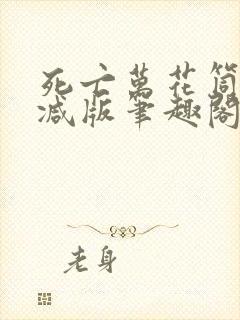 死亡萬花筒
減版筆趣閣
老身